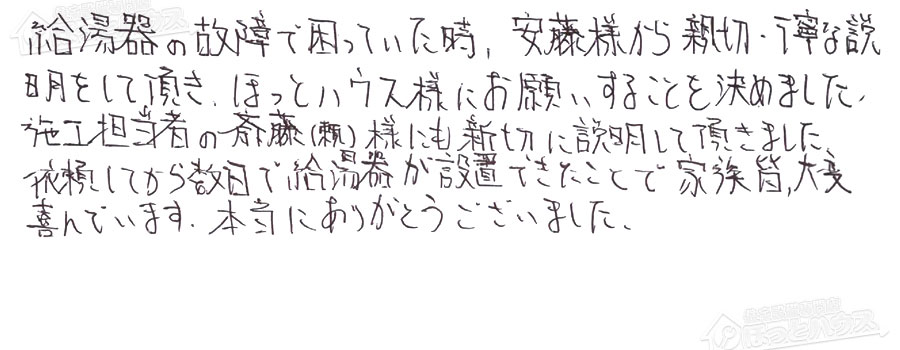 給湯器の故障で困っていた時、安藤様から親切・丁寧な説
明をして頂き、ほっとハウス様にお願いすることを決めました。
施工担当者の斎藤(頼)様にも親切に説明して頂きました、
依頼してから数日で給湯器が設置できたことで家族皆、大変
喜んでいます。本当にありがとうございました。
ほっとハウス